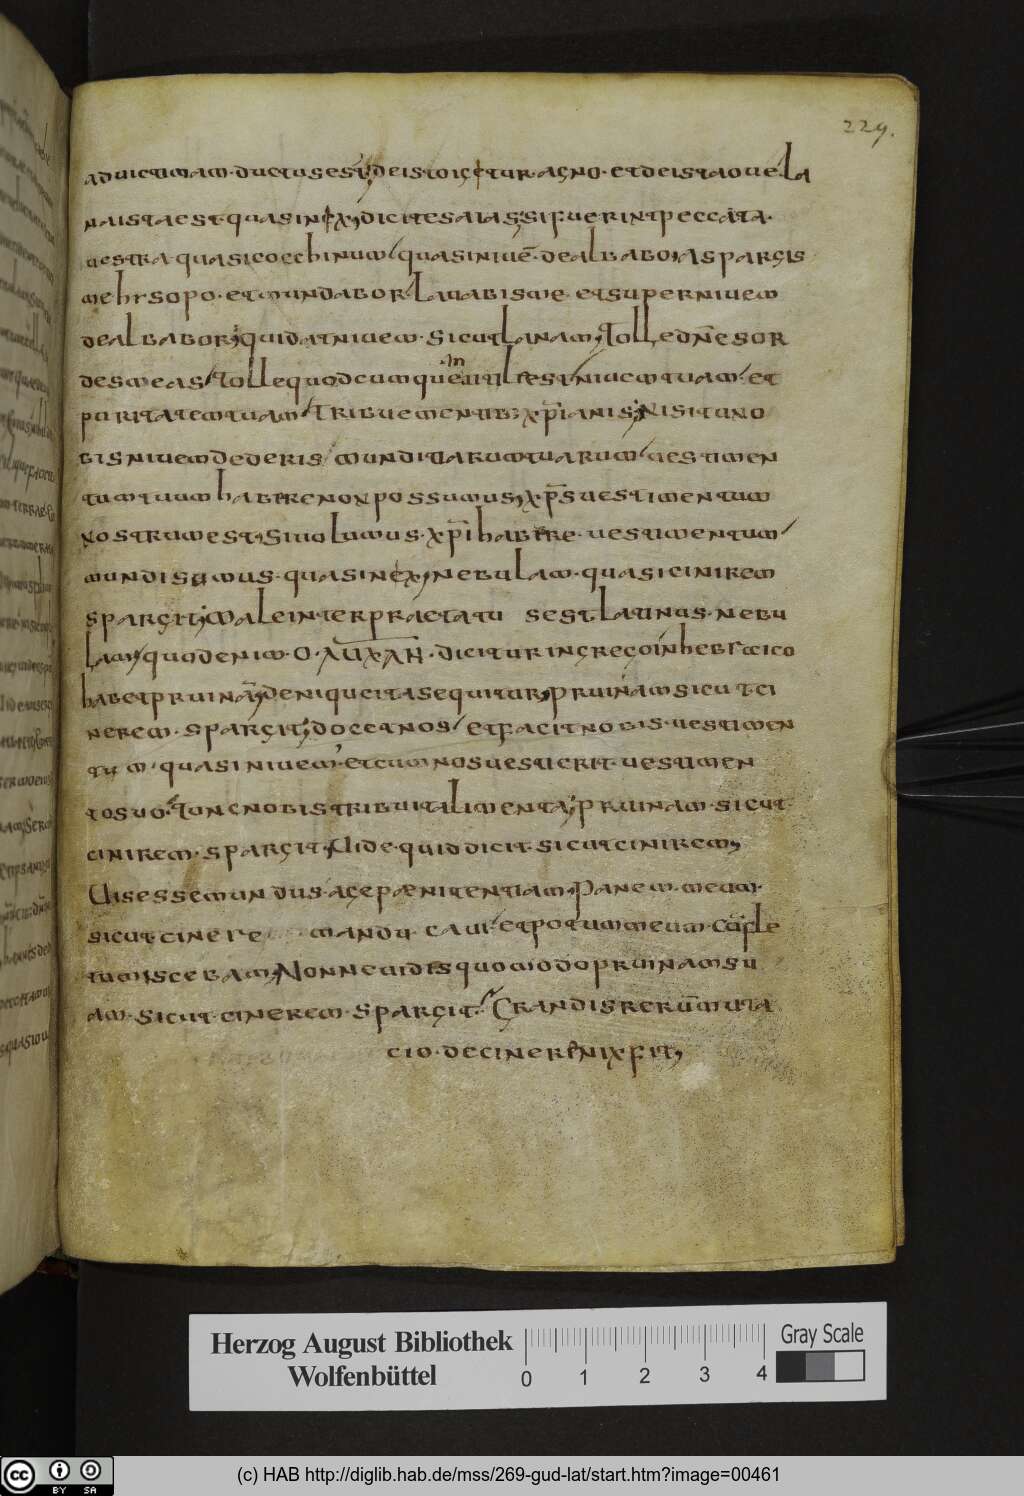 229.
aduictimam. ductus est; de isto igitur agno. et de ista oue. la
na ista est. quasi nix; dicit esaias; si fuerint peccata.
uestra quasi coechinum / quasi niuē. dealbabo; Asparges
me hysopo. et mundabor / Lauabis me. et super niuem
dealbabor; qui dat niuem. sicut lanam; Tolle dn̄e sor
des meas / Tolle quodcumque inutile est / niuem tuam / et
puritatem tuam / Tribue mentib; xp̄ianis; Nisi tu no
bis niuem dederis / munditiarum tuarum / uestimen
tum tuum habere non possumus; xp̄s uestimentum
nostrum est; Si uolumus. xp̄i habere. uestimentum /
mundi simus. quasi nix; nebulam. quasi cinirem
spargit; Male interpraetatu sest latinus. nebu
lam; quod enim. O. ΛUΧΛΗ. dicitur in grego in hebraico
habet pruinā; denique ita sequitur; pruinam sicut ci
nerem. spargit; docet nos / et facit nobis. uestimen
tum. quasi niuem. et cum nos uestierit. uestimen
to suo. Tunc nobis tribuit alimenta; pruinam. sicut.
cinirem. spargit; Uide. quid dicit. sicut cinirem;
Uis esse mundus. age paenitentiam; Panem. meum.
sicut cinere manducaui / et potum meum. cū fle
tu miscebam; Nonne uides quomodo pruinam su
am. sicut. cinerem. spargit. Grandis rerū muta
cio. de cinere nix fit;
Herzog August Bibliothek
Wolfenbüttel
0 1 2 3 4
Gray Scale
cc BY SA
(c) HAB http://diglib.hab.de/mss/269-gud-lat/start.htm?image=00461